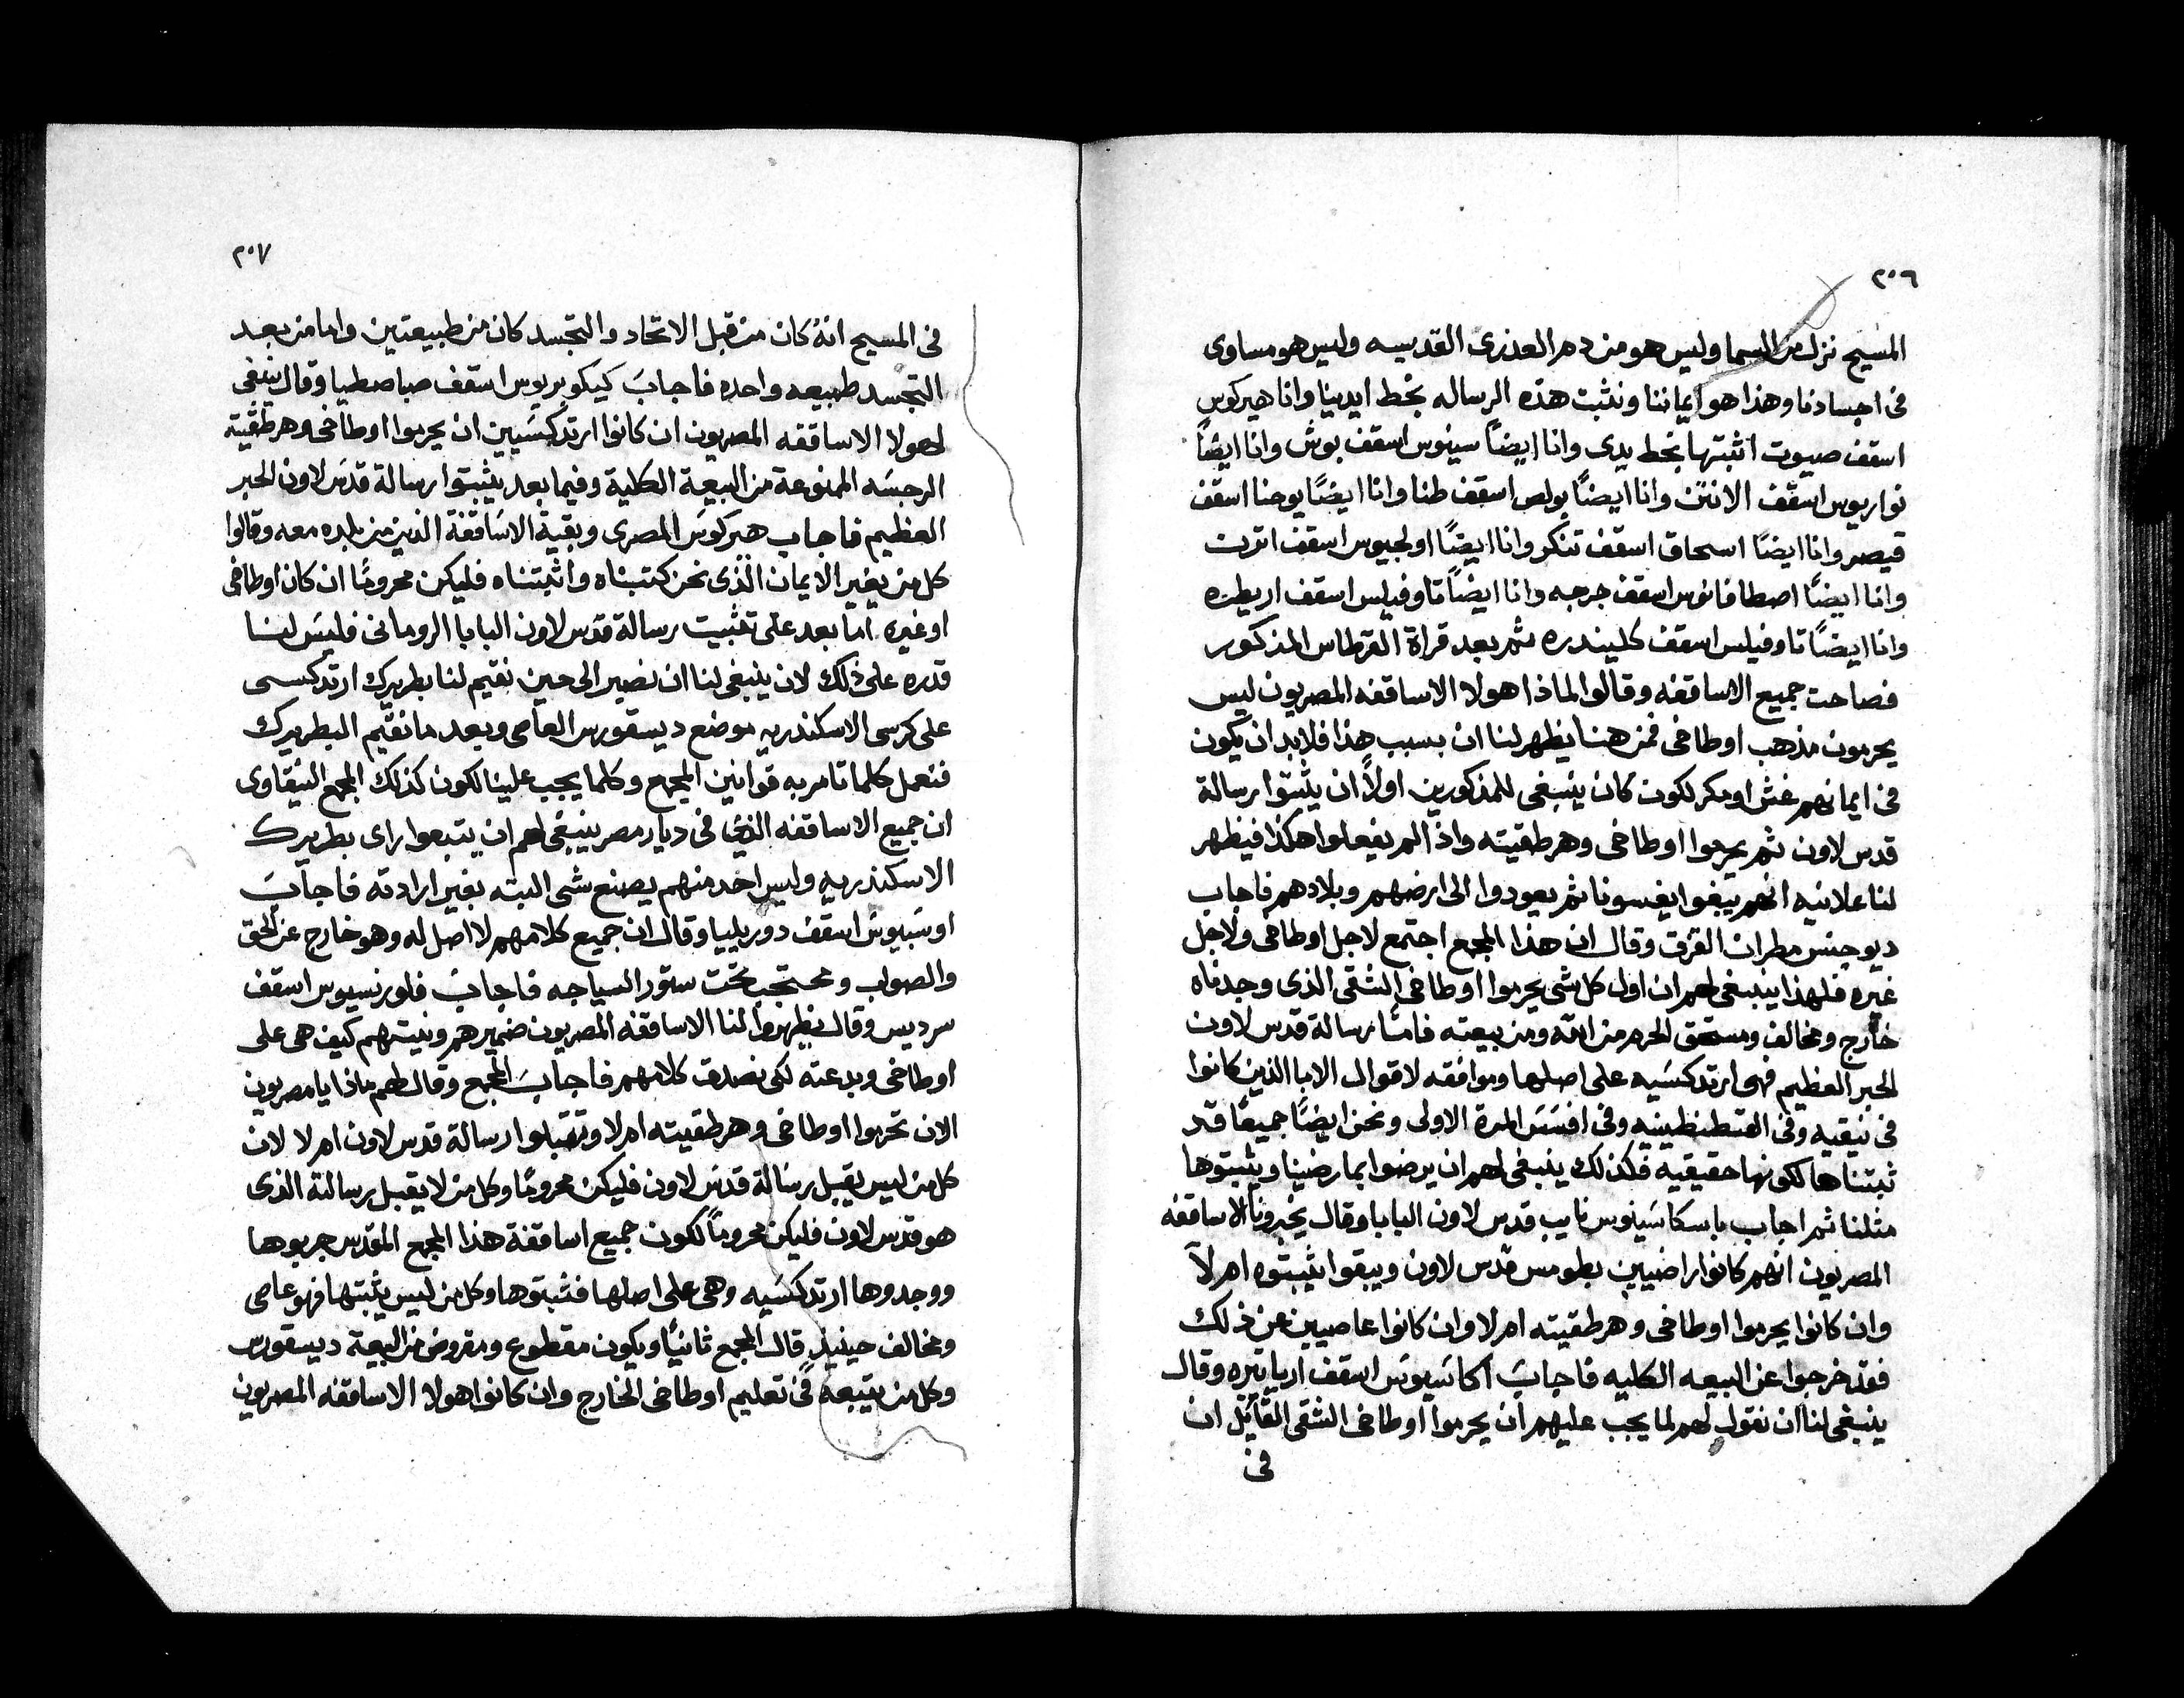 ٢٠٦
المسيح نزل من السما وليس هو من دم العذرى القديسه وليس هو مساوى
فى اجسادنا وهذا هو ايماننا ونثبت هذه الرساله بخط ايدينا وانا هيركوس
اسقف صيوت اثبتها بخط يدى وانا ايضاً سينوس اسقف بوش وانا ايضاً
نواريوس اسقف الانتن وانا ايضاً بولص اسقف طنا وانا ايضاً يوحنا اسقف
قيصر وانا ايضاً اسحاق اسقف تنكر وانا ايضاً اولجيوس اسقف اتربت
وانا ايضاً اصطافانوس اسقف جرجه وانا ايضاً تاوفيلس اسقف اريطره
وانا ايضاً تاوفيلس اسقف كليندره ثم بعد قراة القرطاس المذكور
فصاحت جميع الاساقفه وقالوا لماذا هولا الاساقفه المصريون ليس
يحرمون مذهب اوطاخى فمن هنا يظهر لنا ان بسبب هذا فلابد ان يكون
فى ايمانهم غش او مكر لكون كان ينبغى للمذكورين اولاً ان يثبتوا رسالة
قدس لاون ثم يحرموا اوطاخى وهرطقيته واذ الم يفعلوا هكذا فيظهر
لنا علانيه انهم يبغوا يغسونا ثم يعودوا الى ارضهم وبلادهم فاجاب
ديوجنس مطران القزق وقال ان هذا المجمع اجتمع لاجل اوطاخى ولاجل
غيره فلهذا ينبغى لهم ان اول كل شى يحرموا اوطاخى الشقى الذى وجدناه
خارج ومخالف ومستحق الحرم من الله ومن بيعته فامّا رسالة قدس لاون
الحبر العظيم فهى ارتدكسيه على اصلها وموافقه لاقوال الابا الذين كانوا
فى نيقيه وفى القسطنطينيه وفى افسس المرة الاولى ونحن ايضاً جميعاً قد
ثبتناها لكونها حقيقيه فكذلك ينبغى لهم ان يرضوا بما رضينا ويثبتوها
مثلنا ثم اجاب باسكاسينوس نايب قدس لاون البابا وقال يخبرونا الاساقفه
المصريون انهم كانوا راضيين بطومس قدس لاون ويبقوا يثبتوه ام لا
وان كانوا يحرموا اوطاخى وهرطقيته ام لا وان كانوا عاصيين عن ذلك
فقد خرجوا عن البيعه الكليه فاجاب اكاسيوس اسقف ارياتيره وقال
ينبغى لنا ان نقول لهم لما يجب عليهم ان يحرموا اوطاخى الشقى القايل ان
فى
٢٠٧
فى المسيح انهُ كان من قبل الاتحاد والتجسد كان من طبيعتين واما من بعد
التجسد طبيعه واحده فاجاب كيكوبريوس اسقف صباصطيا وقال ينبغى
لهولا الاساقفه المصريون ان كانوا ارتدكسيين ان يحرموا اوطاخى وهرطقيته
الرجسه الممنوعة من البيعة الكلية وفيما بعد يثبتوا رسالة قدس لاون الحبر
العظيم فاجاب هيركوس المصرى وبقية الاساقفة الذين من بلده معه وقالوا
كل من يغير الايمان الذى نحن كتبناه واثبتناه فليكن محروماً ان كان اوطاخى
او غيره اما بعد على تثبيت رسالة قدس لاون البابا الرومانى فليس لنا
قدره على ذلك لان ينبغى لنا ان نصير الى حين نقيم لنا بطريرك ارتدكسى
على كرسى الاسكندريه موضع ديسقورس العاصى وبعد ما نقيم البطريرك
فنعمل كلما تامر به قوانين المجمع وكلما يجب علينا لكون كذلك المجمع النيقاوى
ان جميع الاساقفه الذى فى ديار مصر ينبغى لهم ان يتبعوا راى بطريرك
الاسكندريه وليس احد منهم يصنع شى البته بغير ارادته فاجاب
اوسبيوس اسقف دوريلييا وقال ان جميع كلامهم لا اصل له وهو خارج عن الحق
والصواب ومحتجب تحت ستور السياجه فاجاب فلورنسيوس اسقف
سرديس وقال يظهروا لنا الاساقفه المصريون ضميرهم ونيتهم كيف هى على
اوطاخى وبدعته لكى نصدق كلامهم فاجاب المجمع وقال لهم ماذا يا مصريون
الان تحرموا اوطاخى وهرطقيته ام لا وتقبلوا رسالة قدس لاون ام لا لان
كل من ليس يقبل رسالة قدس لاون فليكن محروماً وكل من لا يقبل رسالته الذى
هو قدس لاون فليكن محروماً لكون جميع اساقفة هذا المجمع المقدس جربوها
ووجدوها ارتدكسيه وهى على اصلها فثبتوها وكل من ليس يثبتها فهو عاصى
ومخالف حينيذٍ قال المجمع ثانياً ويكون مقطوع ومقروض من البيعة ديسقورس
وكل من يتبعه فى تعليم اوطاخى الخارج وان كانوا هولا الاساقفه المصريون